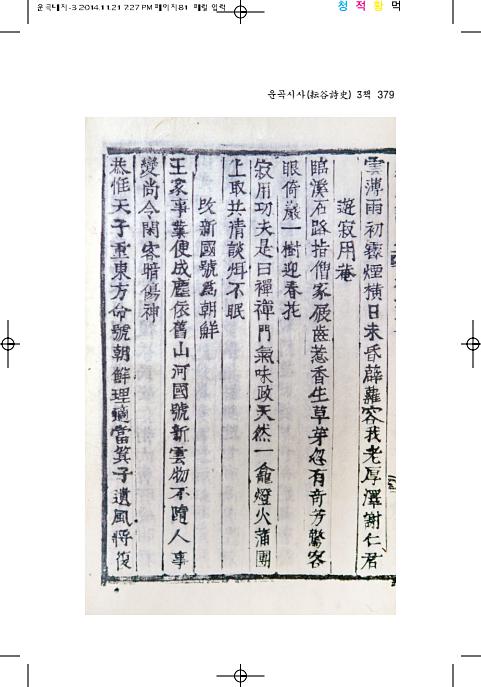 운곡내지-3 2014.11.21 7:27 PM 페이지81
청 적 황 먹
운곡시사(耘谷詩史) 3책 379
雲薄雨初霽煙橫日未昏薜蘿容我老厚澤謝仁君
遊寂用菴
臨溪石路指僧家屐齒惹香生草芽忽有奇芳驚客
眼倚巖一樹迎春花
寂用功夫是曰禪禪門氣味政天然一龕燈火蒲團
上取共淸談煩不眠
改新國號爲朝鮮
王家事業便成塵依舊山河國號新雲物不隨人事
變尙令閑客暗傷神
恭惟天子重東方命號朝鮮理適當箕子遺風將復